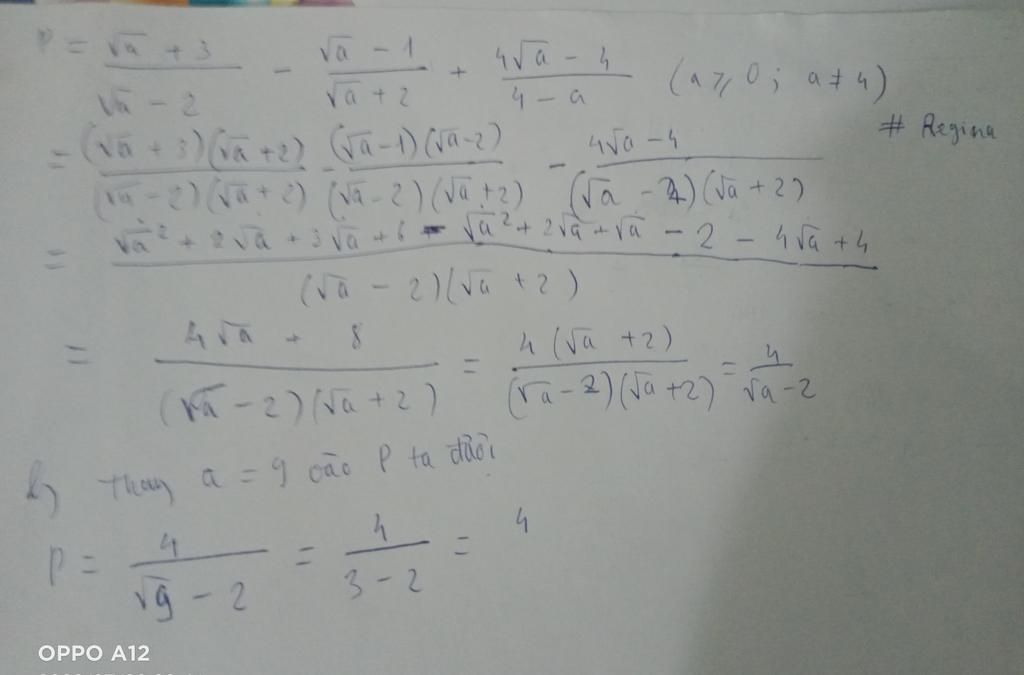 P = (√a + 3)/(√a - 2) - (√a - 1)/(√a + 2) + (4√a - 4)/(4 - a) (a ⩾ 0; a ≠ 4)
# Regina
= (√a + 3)(√a + 2)/(√a - 2)(√a + 2) - (√a - 1)(√a - 2)/(√a - 2)(√a + 2) - (4√a - 4)/(√a - 2)(√a + 2)
= (√a² + 2√a + 3√a + 6 - √a² + 2√a + √a - 2 - 4√a + 4)/(√a - 2)(√a + 2)
= (4√a + 8)/(√a - 2)(√a + 2) = 4(√a + 2)/(√a - 2)(√a + 2) = 4/(√a - 2)
b, Thay a = 9 vào P ta
P = 4/(√9 - 2) = 4/(3 - 2) = 4
OPPO A12